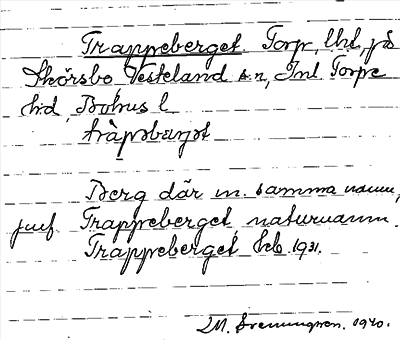 Trappeberget. Torp, lht, på
Skörsbo, Västeland s. n, Inl Torpe
hd, Bohus l
tràpəbærjət
Berg där m. samma namn,
jmf Trappeberget, naturnamn.
Trappeberget, hcb 1931.
M. Brenmngren. 1940.